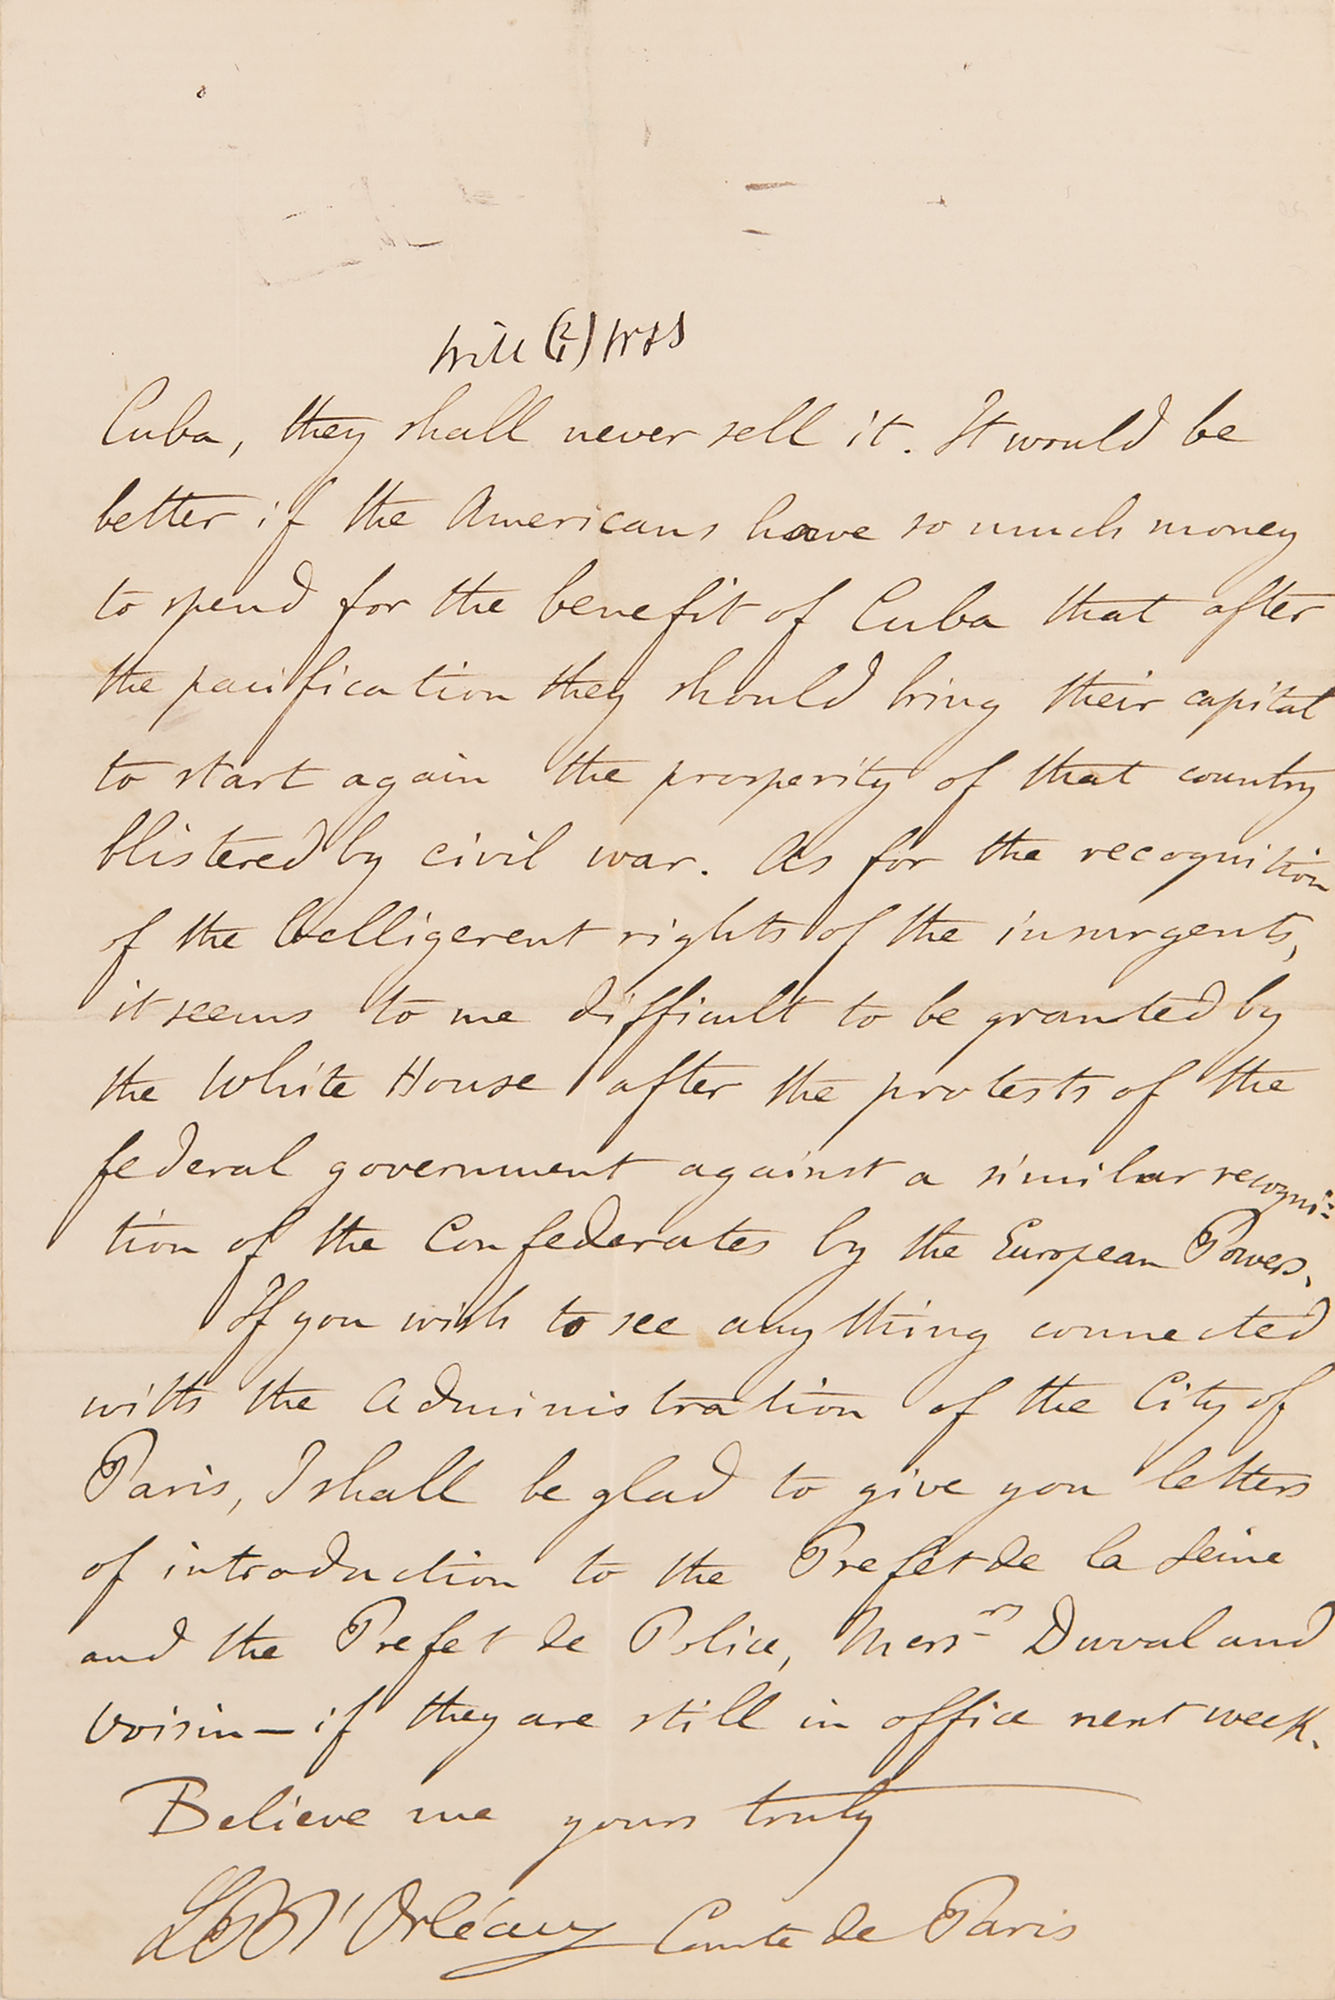 Cuba, they shall never sell it. It would be
better if the Americans have so much money
to spend for the benefit of Cuba that after
the pacification they should bring their capital
to start again the prosperity of that country
blistered by civil war. As for the recognition
of the belligerent rights of the insurgents,
it seems to me difficult to be granted by
the White House after the protests of the
federal government against a similar recogni=
tion of the Confederates by the European Powers.
If you wish to see anything connected
with the Administration of the City of
Paris, I shall be glad to give you letters
of introduction to the Prefet de la Seine
and the Prefet de Police, Mess rs Duval and
Voisin — if they are still in office next week.
Believe me yours truly
d'Orléans Comte de Paris